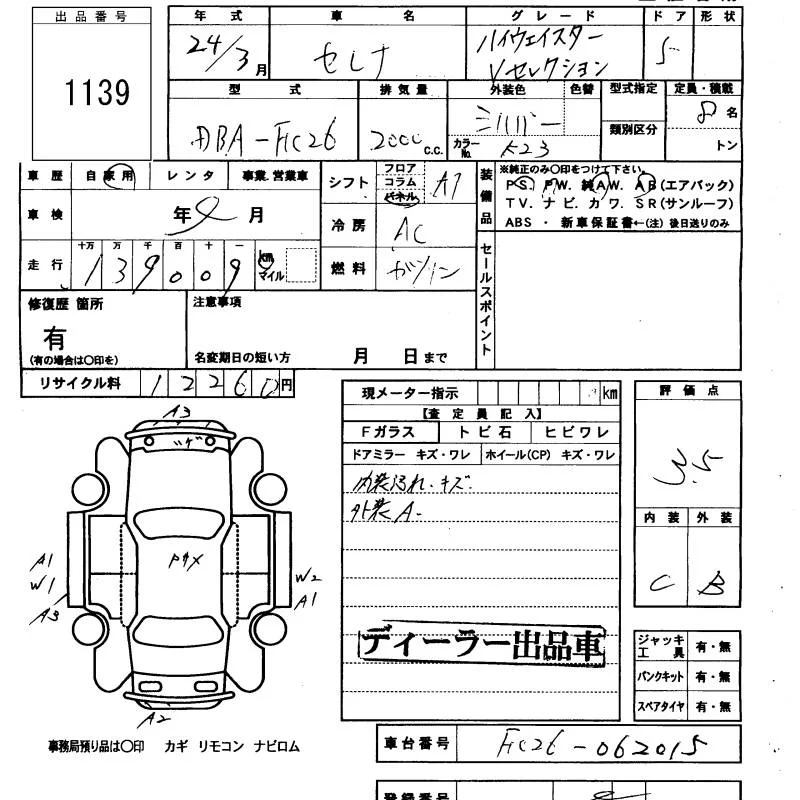 出品番号
1139
年式 車名 グレード ドア 形状
24/3月 セレナ ハイウェイスター 5
Vセレクション
型式 排気量 外装色 色替 型式指定 定員・積載
DBA-FC26 2000c.c. シルバー カラーNo. K23 類別区分 8名
トン
車歴 自家用 レンタ 事業.営業車
シフト フロア コラム パネル AT
装備品 ※純正のみ○印をつけて下さい。
PS. PW. 純AW. AB(エアバック)
TV. ナビ. カワ. SR(サンルーフ)
ABS ・ 新車保証書←(注)後日送りのみ
車検 年 月
冷房 AC
走行 十万 万 千 百 十 一
139009 km マイル
燃料 ガソリン
セールスポイント
修復歴 箇所
有
(有の場合は○印を)
注意事項
名変期日の短い方 月 日まで
リサイクル料 12260円
現メーター指示 km
【査定員記入】
Fガラス トビ石 ヒビワレ
ドアミラー キズ・ワレ ホイール(CP) キズ・ワレ
内装汚れ・キズ.
外装A-
評価点
3.5
内装 外装
C B
A3
A1
W1
A3
W2
A1
A2
ディーラー出品車
ジャッキ工具 有・無
パンクキット 有・無
スペアタイヤ 有・無
事務局預り品は○印 カギ リモコン ナビロム
車台番号 FC26-062015
登録番号